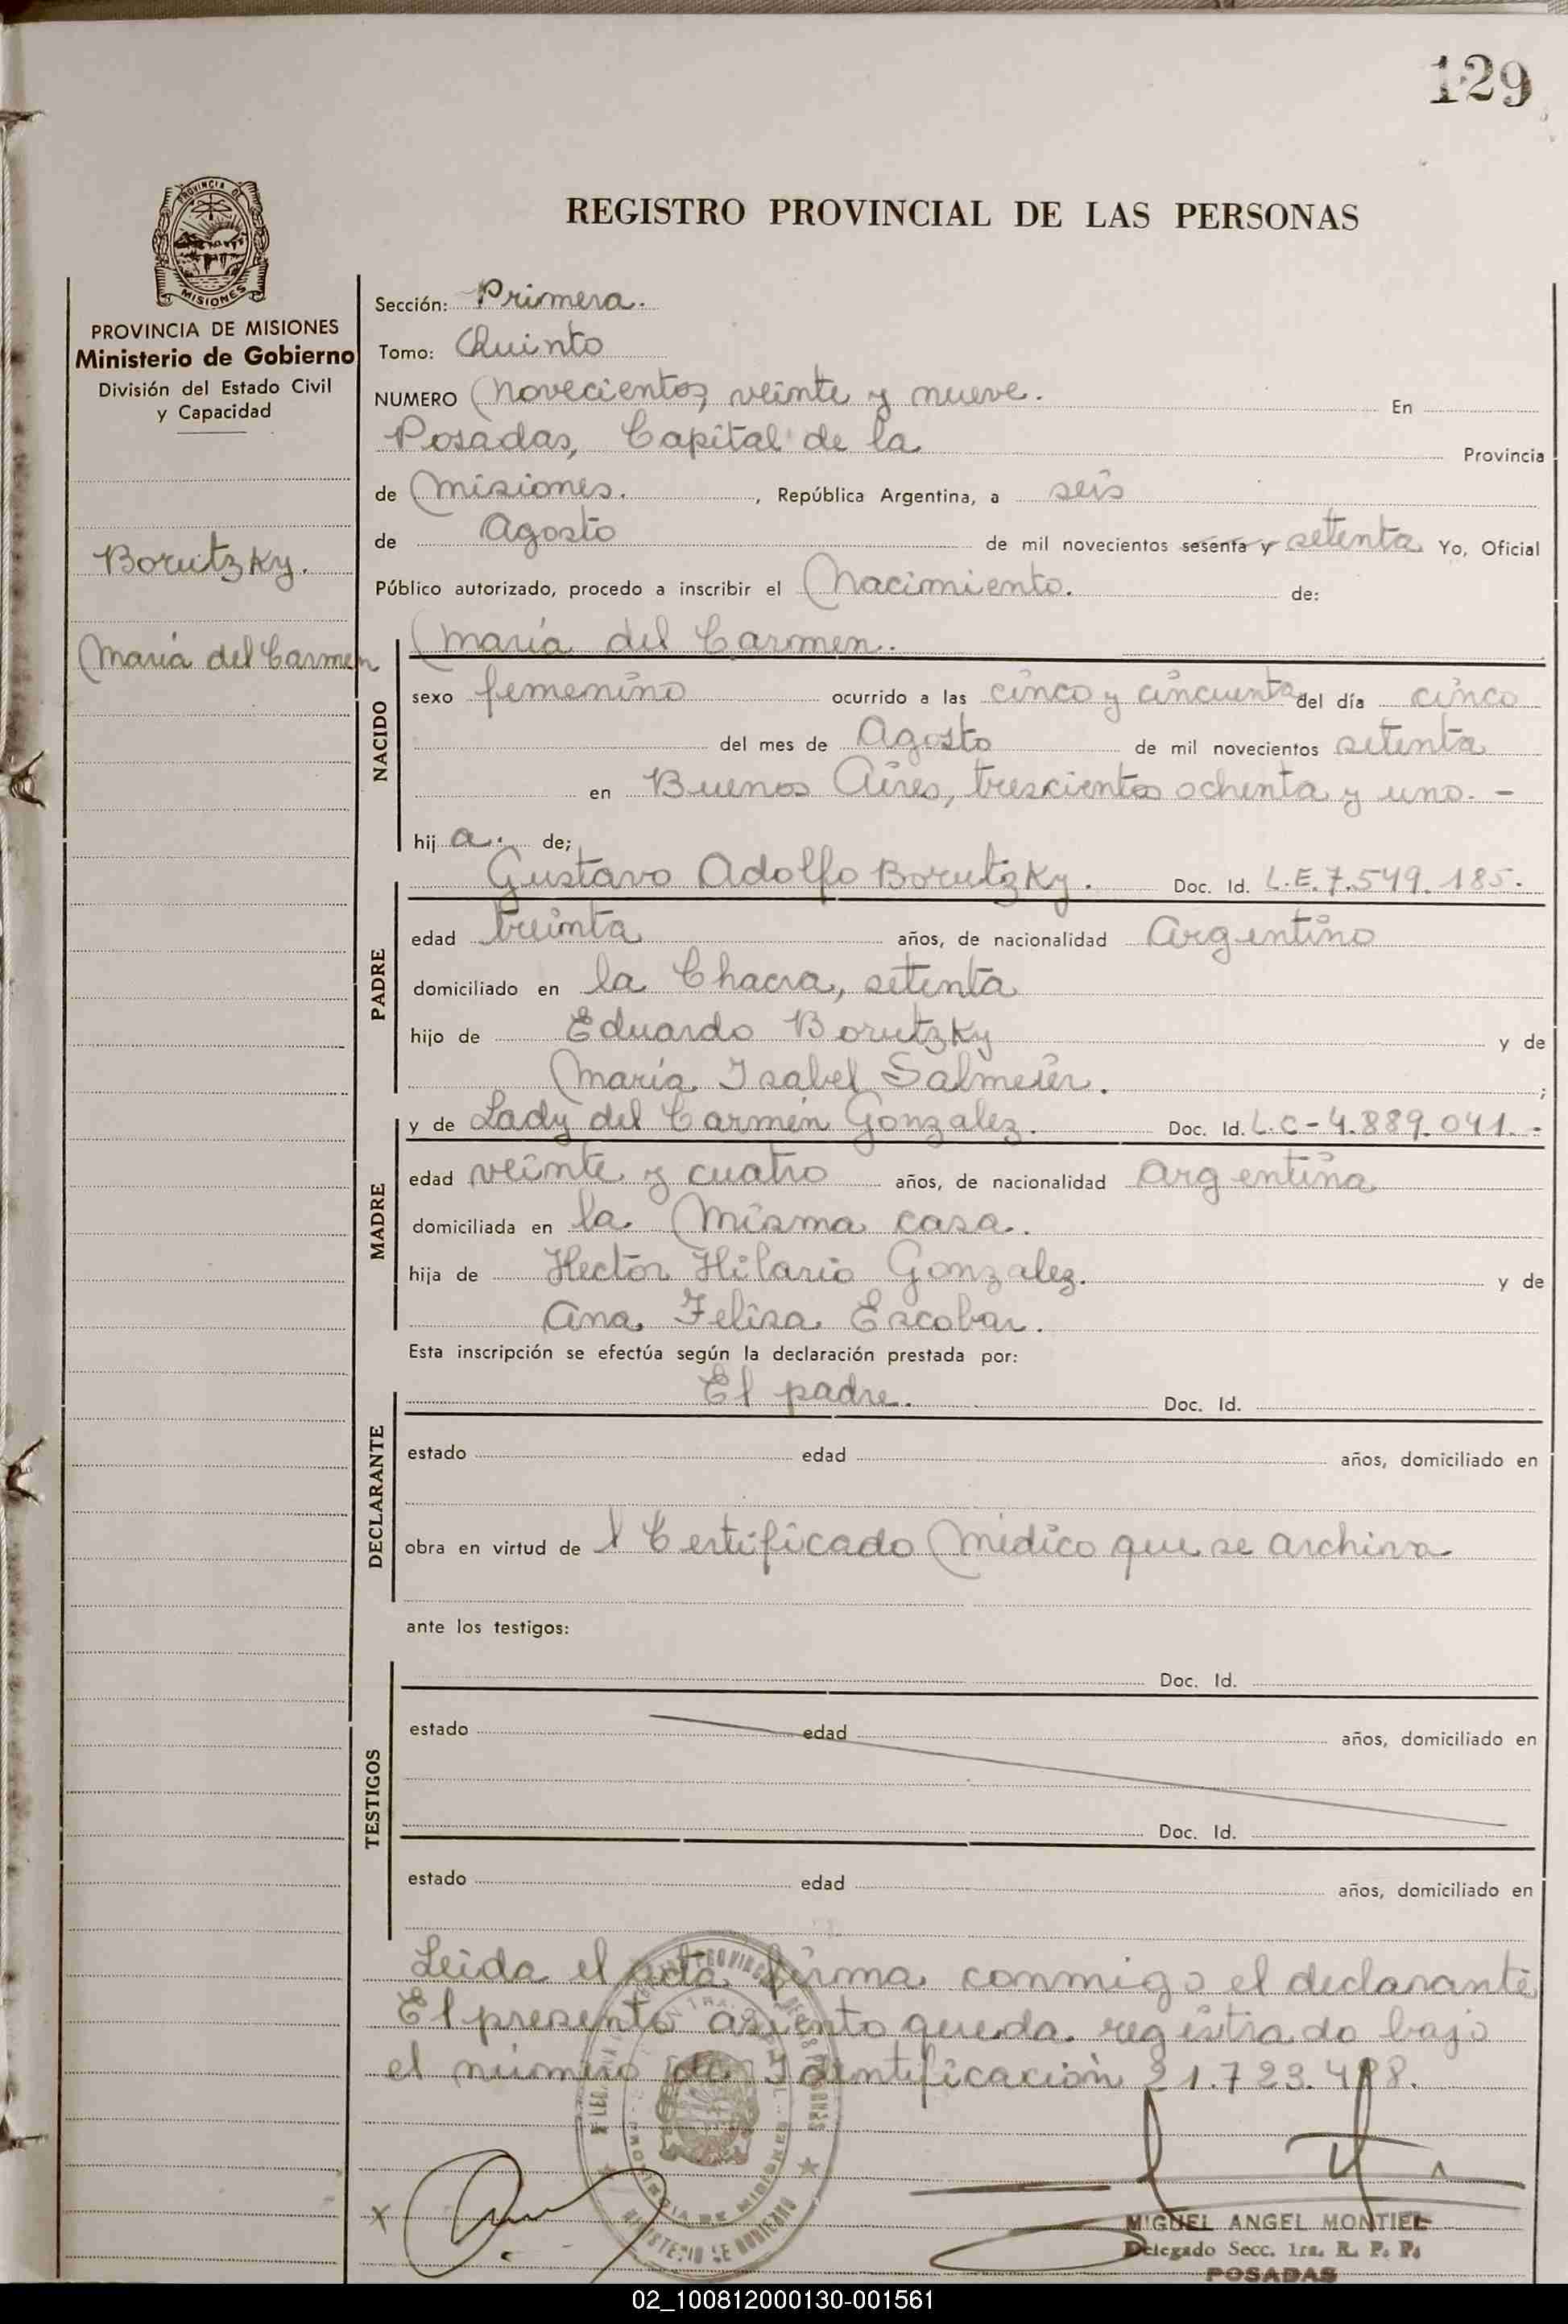 129
PROVINCIA DE
MISIONES
REGISTRO PROVINCIAL DE LAS PERSONAS
PROVINCIA DE MISIONES
Ministerio de Gobierno
División del Estado Civil
y Capacidad
Borutzky.
María del Carmen
Sección: Primera.
Tomo: Quinto
NUMERO Novecientos veinte y nueve. En
Posadas, Capital de la Provincia
de Misiones. , República Argentina, a seis
de Agosto de mil novecientos sesenta y setenta Yo, Oficial
Público autorizado, procedo a inscribir el Nacimiento. de:
María del Carmen.
NACIDO
sexo femenino ocurrido a las cinco y cincuenta del día cinco
del mes de Agosto de mil novecientos setenta
en Buenos Aires, trescientos ochenta y uno. -
hij a. de;
PADRE
Gustavo Adolfo Borutzky. Doc. Id. L.E. 7.549.185.
edad treinta años, de nacionalidad Argentino
domiciliado en la Chacra, setenta
hijo de Eduardo Borutzky y de
María Isabel ;
MADRE
y de Lady del Carmen Gonzalez. Doc. Id. L.C - 4.889.041. -
edad veinte y cuatro años, de nacionalidad Argentina
domiciliada en la Misma casa.
hija de Hector Hilario Gonzalez. y de
Ana Felisa Escobar.
Esta inscripción se efectúa según la declaración prestada por:
DECLARANTE
El padre. Doc. Id.
estado edad años, domiciliado en
obra en virtud de l Certificado Médico que se archiva
ante los testigos:
TESTIGOS
Doc. Id.
estado edad años, domiciliado en
Doc. Id.
estado edad años, domiciliado en
Leida el acta firma conmigo el declarante
El presente asiento queda registrado bajo
el número de Identificación
MIGUEL ANGEL MONTIEL
Delegado Secc. 1ra. R. P. P.
POSADAS
02_100812000130-001561